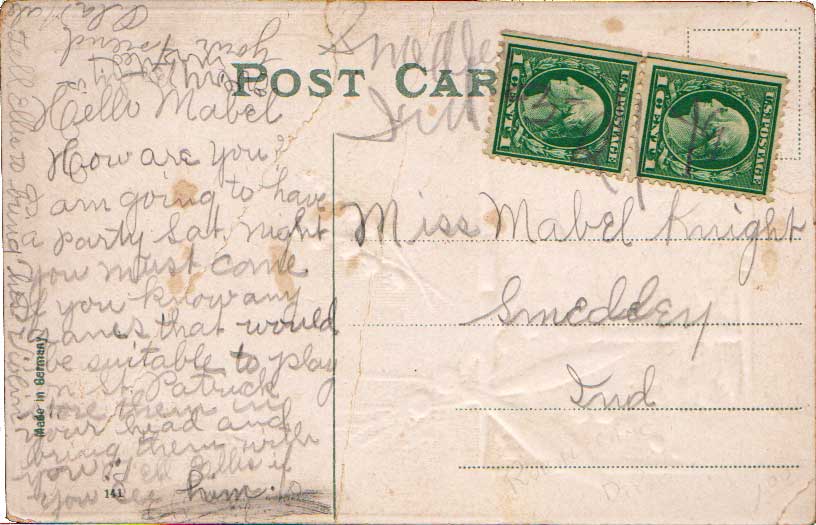 POST CAR
Smedle
Ind
U.S. POSTAGE
1 CENT 1
U.S. POSTAGE
1 CENT 1
Hello Mabel
How are you?
am going to have
a party Sat night
you must come
if you know any
games that would
be suitable to play
on St. Patrick
store them in
your head and
bring them with
you. Tell Ellis if
you see him.
Tell Ellis to bring his violin
your friend
Miss Mabel Knight
Smedley
Ind
Made in Germany
141